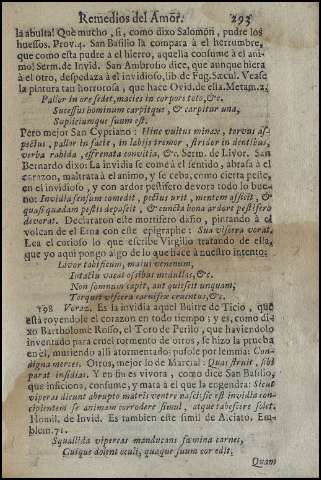 Remedios del Amor. 293
la abulta! Què mucho, si, como dixo Salomòn, pudre los
huessos. Prov. 4. San Basilio la compara à el herrumbre,
que como esta pudre a el hierro, aquella consume à el ani-
mo: Serm. de Invid. San Ambrosio dice, que aunque hiera
à el otro, despedaza à el invidioso, lib. de Fug. Sæcul. Vease
la pintura tan horrorosa, que hace Ovid. de ella. Metam. 2.
Pallor in ore sedet, macies in corpore toto, &c.
Sucessus hominum carpitque, & carpitur una,
Supliciumque suum est.
Pero mejor San Cypriano: Hinc vultus minax, torvus as-
pectus, pallor in facie, in labijs tremor, stridor in dentibus,
verba rabida, effrenata convitia, &c. Serm. de Livor. San
Bernardo dixo: La invidia se come à el sentido, abrasa à el
corazon, maltrata à el animo, y se ceba, como cierta peste,
en el invidioso, y con ardor pestifero devora todo lo bue-
no: Invidia sensum comedit, pectus urit, mentem afficit, &
quasi quadam pestis depascit, & cuncta bona ardore pestifero
devorat. Dibuxaron este mortifero daño, pintando à el
volcan de el Etna con este epigraphe: Sua viscera vorat.
Lea el curioso lo que escribe Virgilio tratando de ella,
que yo aqui pongo algo de lo que hace à nuestro intento:
Livor tabificum, malis venenum,
Intactis vacat ossibus medullas, &c.
Non somnum capit, aut quiescit unquam,
Torquet viscera carnifex cruentus, &c.
798 Voraz. Es la invidia aquel Buitre de Ticio, que
està royendole el corazon en todo tiempo; y es, como di-
xo Bartholomè Rosso, el Toro de Perilo, que haviendolo
inventado para cruel tormento de otros, se hizo la prueba
en el, muriendo alli atormentado: pusole por lemma: Con-
digna merces. Otros, mejor lo de Marcial: Quas struit, sibi
parat insidias. Y en fin es vivora, como dice San Basilio,
que inficiona, consume, y mata à el que la engendra: Sicut
viperas dicunt abrupto matris ventre nasci, sic est invidia con-
cipientem se animam corrodere simul, atque tabefcere solet.
Homil. de Invid. Es tambien este simil de Alciato. Em-
blem. 71.
Squallida vipereas manducans fæmina carnes,
Cuique dolent oculi, quæque suum cor edit,
Quam